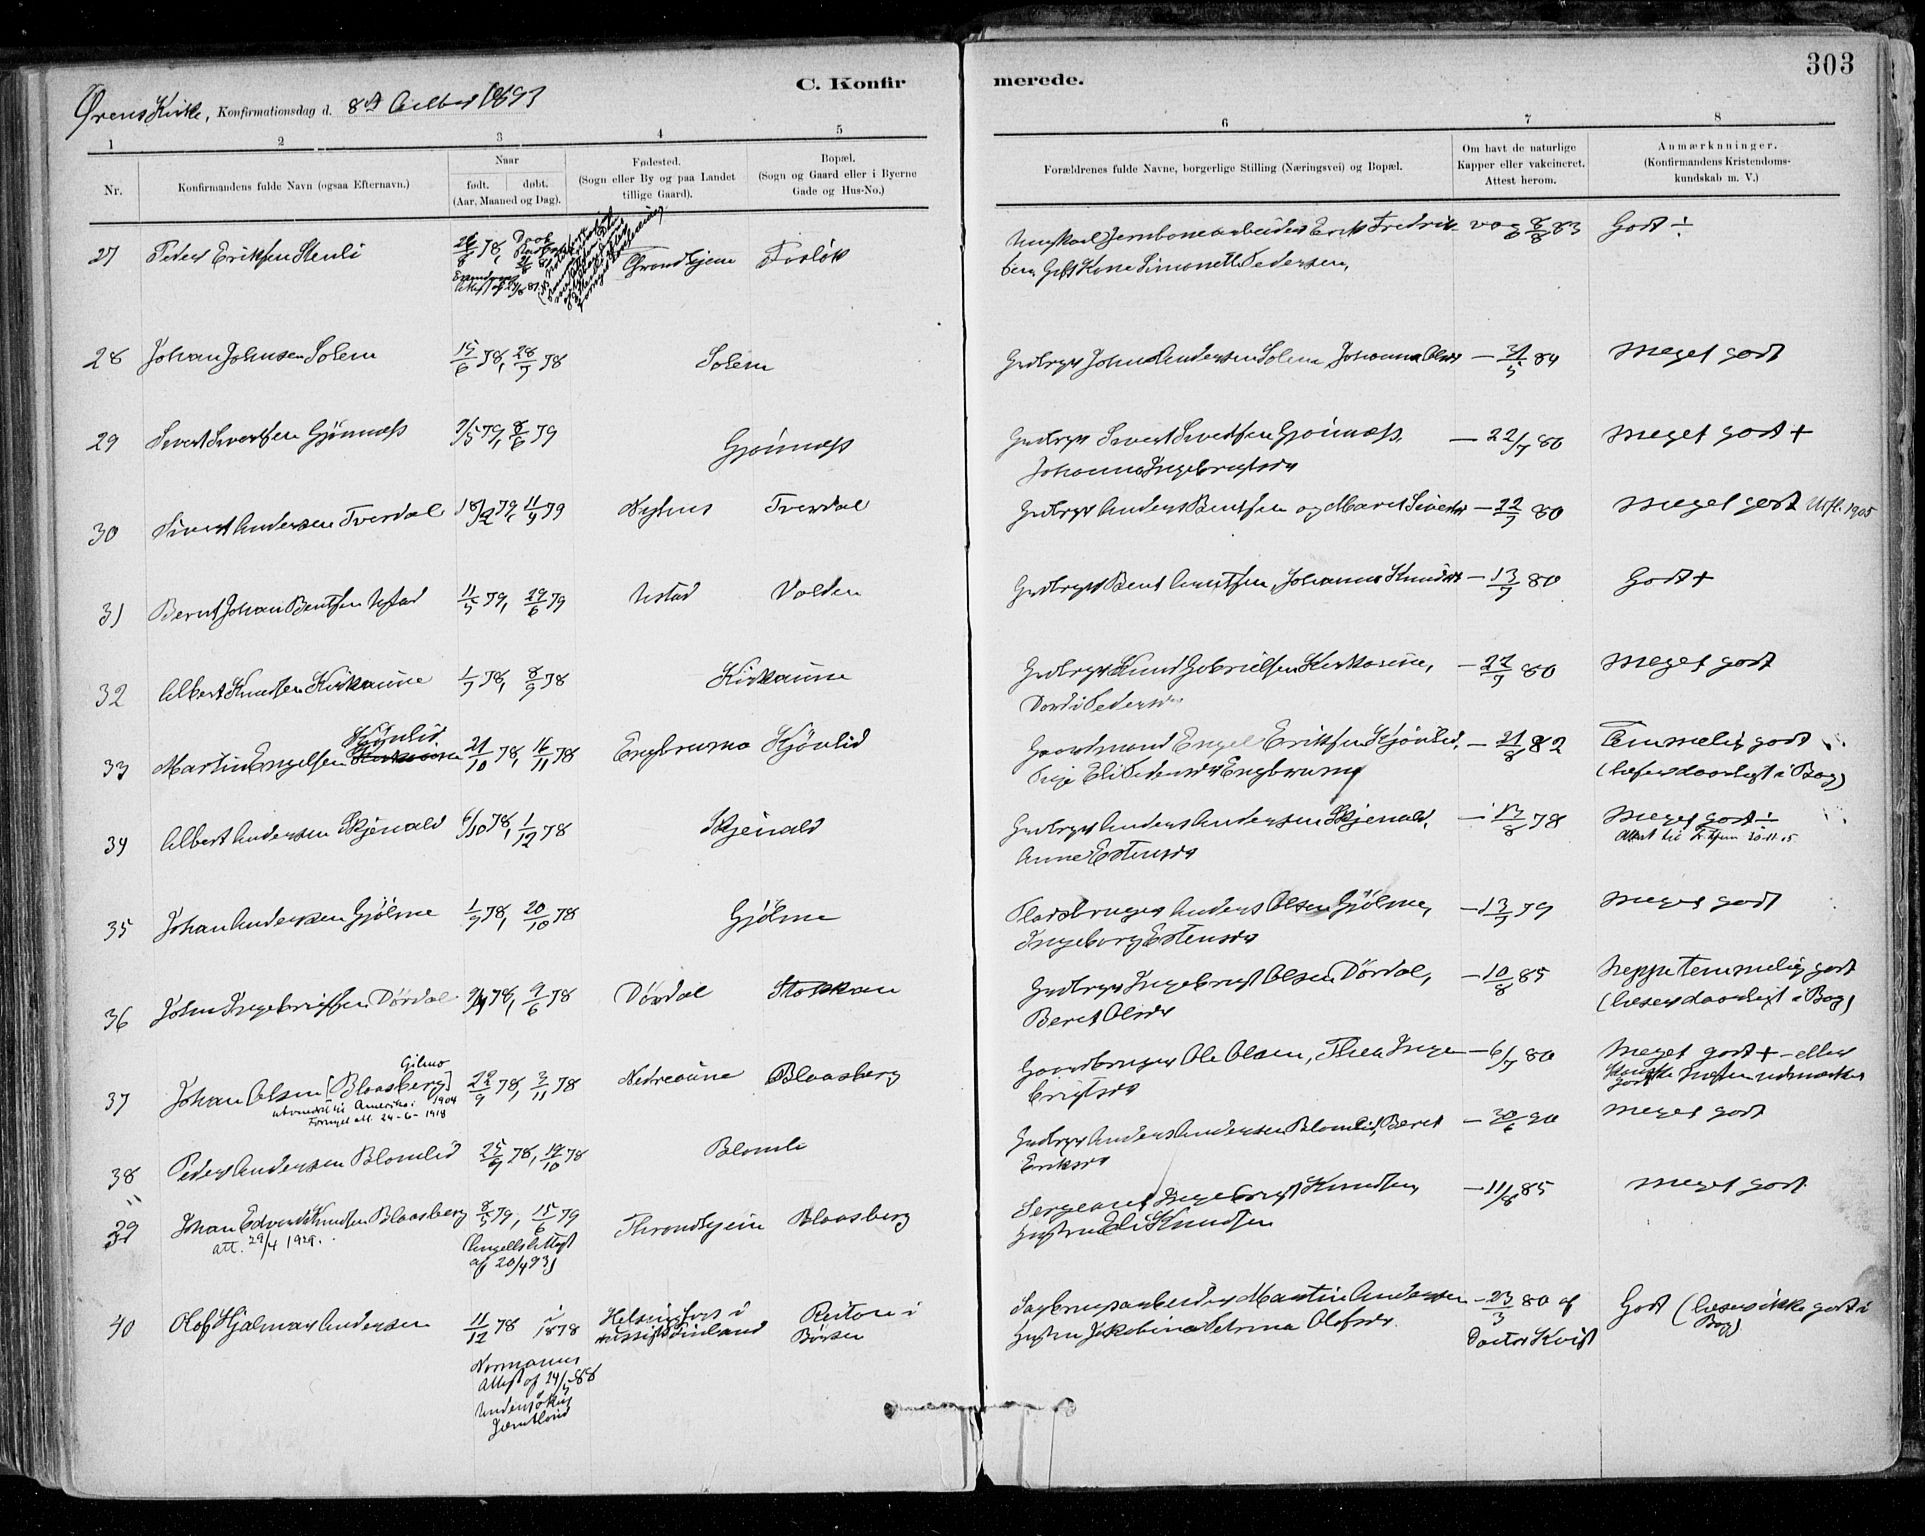 303
C. Konfirmerede.
Ørens Kirke, Konfirmationsdag d. 8de 1893
1 2 3 4 5 6 7 8
Nr.
Konfirmandens fulde Navn (ogsaa Efternavn.)
Naar
født. døbt.
(Aar, Maaned og Dag).
Fødested.
(Sogn eller By og paa Landet
tillige Gaard).
Bopæl.
(Sogn og Gaard eller i Byerne
Gade og Hus-No.)
Forældrenes fulde Navne, borgerlige Stilling (Næringsvei) og Bopæl.
Om havt de naturlige
Kapper eller vakcineret.
Attest herom.
Anmærkninger.
(Konfirmandens Kristendoms-
kundskab m. V.)
27 Peder Eriksen Stenli 78, Trondhjem Jernbanearbeider Erik Fredrik- vac 83 Godt ÷
sen, Simonette Pedersen,
28 Johan Johnsen Solem 15/6 78, 28/7 78 Solem Grdbrgr John Andersen Solem, Johanna Olsdr — 31/5 84 Meget godt
29 Sivert Sivertsen Gjönnæss 9/5 79, 8/6 79 Gjönnæss Grdbrgr Sivert Sivertsen Gjönnæss, — 22/7 80 Meget godt +
Johanna Ingebrigtsdr
30 Sivert Andersen Tverdal 18/2 79, 11/4 79 Nyhus Tverdal Grdbrgr Anders Bentsen og Maret Sivertsdr — 22/7 80 Meget godt Utfl. 1905
31 Bernt Johan Bentsen Ustad 11/5 79, 29/6 79 Ustad Volden Grdbrgr Bent Arntsen, Johanna Knudsdr — 13/7 80 Godt +
32 Albert Knudsen Kirkaune 1/7 78, 8/9 78 Kirkaune Grdbrgr Knud Gabrielsen Kirkaune, — 22/7 80 Meget godt
Dordi Pedersdr
33 Martin Engelsen Kjönlid 21/10 78, 16/11 78 Engbruma Kjönlid Gaardmand Engel Eriksen Kjönlid, — 21/8 82 Temmelig godt
Pige Eli Pedersdr Engbruma (læser daarligt i Bog)
34 Albert Andersen Skjenald 6/10 78, 1/12 78 Skjenald Grdbrgr Anders Andersen Skjenald, — 13/8 78 Meget godt ÷
Anne Estensdr Attest til Tr.hjem 30-11-15
35 Johan Andersen Gjölme 1/9 78, 20/10 78 Gjölme Pladsbruger Anders Olsen Gjölme, — 13/7 79 Meget godt
Ingeborg Estensdr
36 John Ingebrigtsen Dördal 9/4 78, 9/6 78 Dördal Stokkan Grdbrgr Ingebrigt Olsen Dördal, — 10/8 85 Neppe temmelig godt
Beret Olsdr (læser daarligt i Bog)
37 Johan Olsen [Blaasberg] Gilmo 22/9 78, 3/11 78 Nedreaune Blaasberg Gaardbruger Ole Olsen, Thea Inge- — 6/7 80 Meget godt + eller
utvandret til Amerika 1904 brigtsdr
Fornyet att. 24-6-1918
38 Peder Andersen Blomlid 25/9 78, 78 Blomli Grdbrgr Anders Andersen Blomlid, Beret — 30/6 90 Meget godt
Eriksdr
39 Johan Edvard Knudsen Blaasberg 8/5 79, 15/6 79 Throndhjem Blaasberg Sergeant Ingebrigt Knudsen, — 11/8 85 Meget godt
att. 29/4 1929. af 20/4 93) Hustru Eli Knudsen
40 Olof Hjalmar Andersen 11/12 78 1878 Helsingfors i Finland i Börsen Sagbrugsarbeider Martin Andersen — 23/3 80 af Godt (læser ikke godt i Bog)
Hustru Jakobina Petrina Olofsdr. Doctor Kvist
Attest af